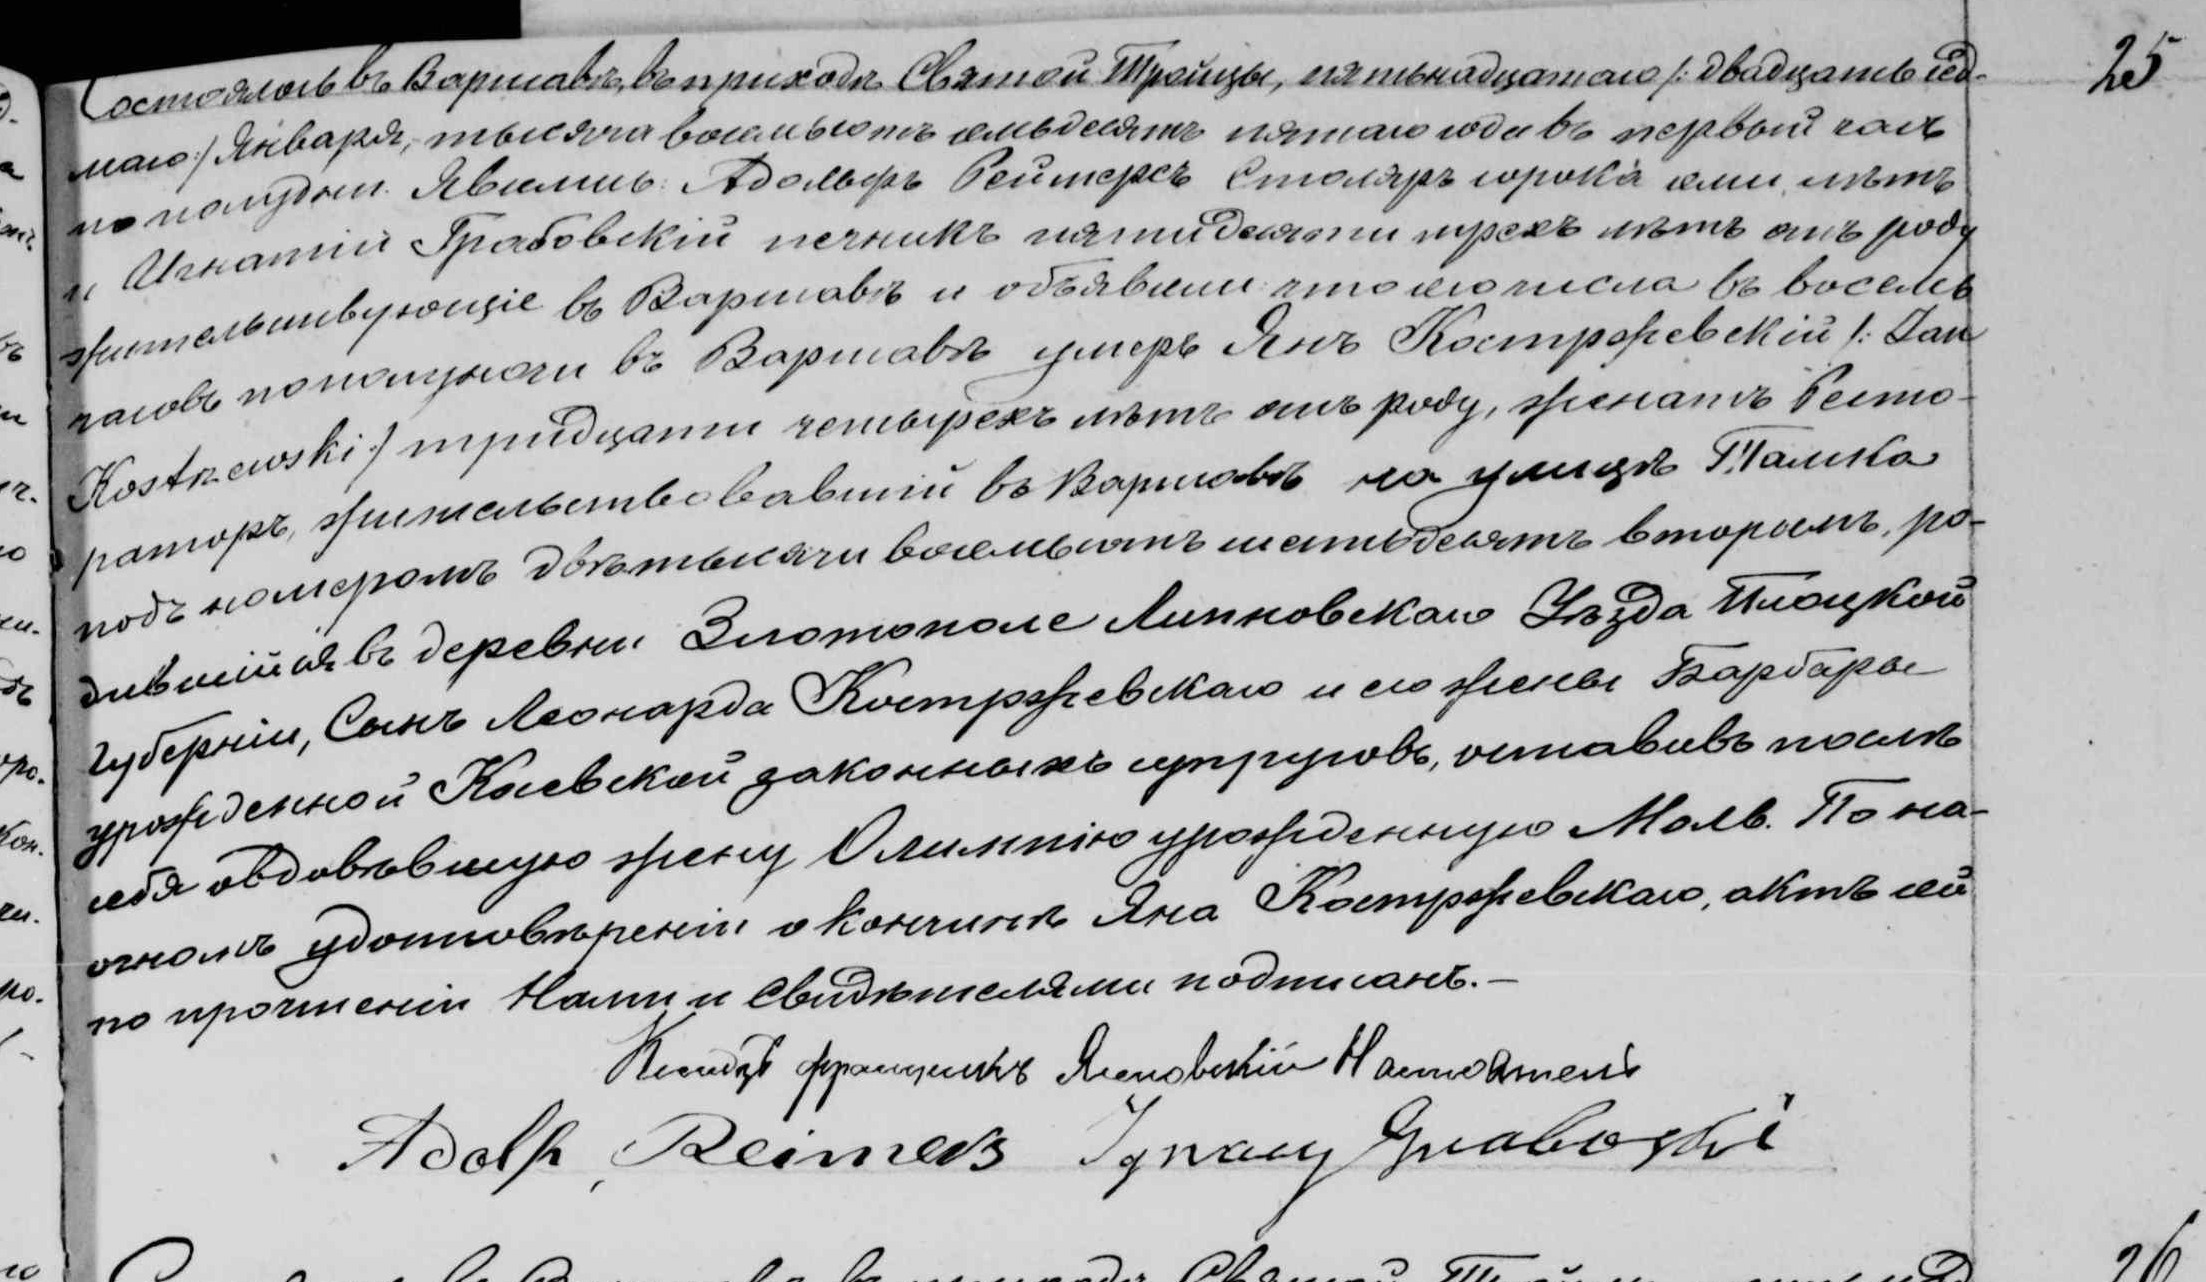 25
Состоялось въ Варшавѣ, въ приходѣ Святой Тройцы, пятьнадцатаго /: двадцать сед-
маго :/ Января, тысяча восемьсотъ семьдесятъ пятаго года въ первый часъ
по полудни. Явились: Адольфъ Реймерсъ Столяръ сорока семи лѣтъ
и Игнатій Грабовскій печникъ пятидесяти трехъ лѣтъ отъ роду
жительствующіе въ Варшавѣ и объявили что сего числа въ восемь
часовъ пополуночи въ Варшавѣ умеръ Янъ Костржевскій /: Jan
Kostrzewski :/ тридцати четырехъ лѣтъ отъ роду, женатъ Ресто-
раторъ, жительствовавшій въ Варшавѣ на улицѣ Тамка
подъ номеромъ двѣ тысячи восемьсотъ шестьдесятъ вторымъ, ро-
дившійся въ деревни Злотополе Липновскаго Уѣзда Плоцкой
Губерніи, Сынъ Леонарда Костржевскаго и его жены Барбары
урожденной Киевской законныхъ супруговъ, оставивъ послѣ
себя овдовѣвшую жену Олимпію урожденную Моль. По на-
очномъ удостовѣреніи о кончинѣ Яна Костржевскаго, актъ сей
по прочтеніи Нами и Свидѣтелями подписанъ.—
Ксендзъ Францишекъ Ясновскій Настоятель
Adolf, Reimers Ignacy Graboski
26